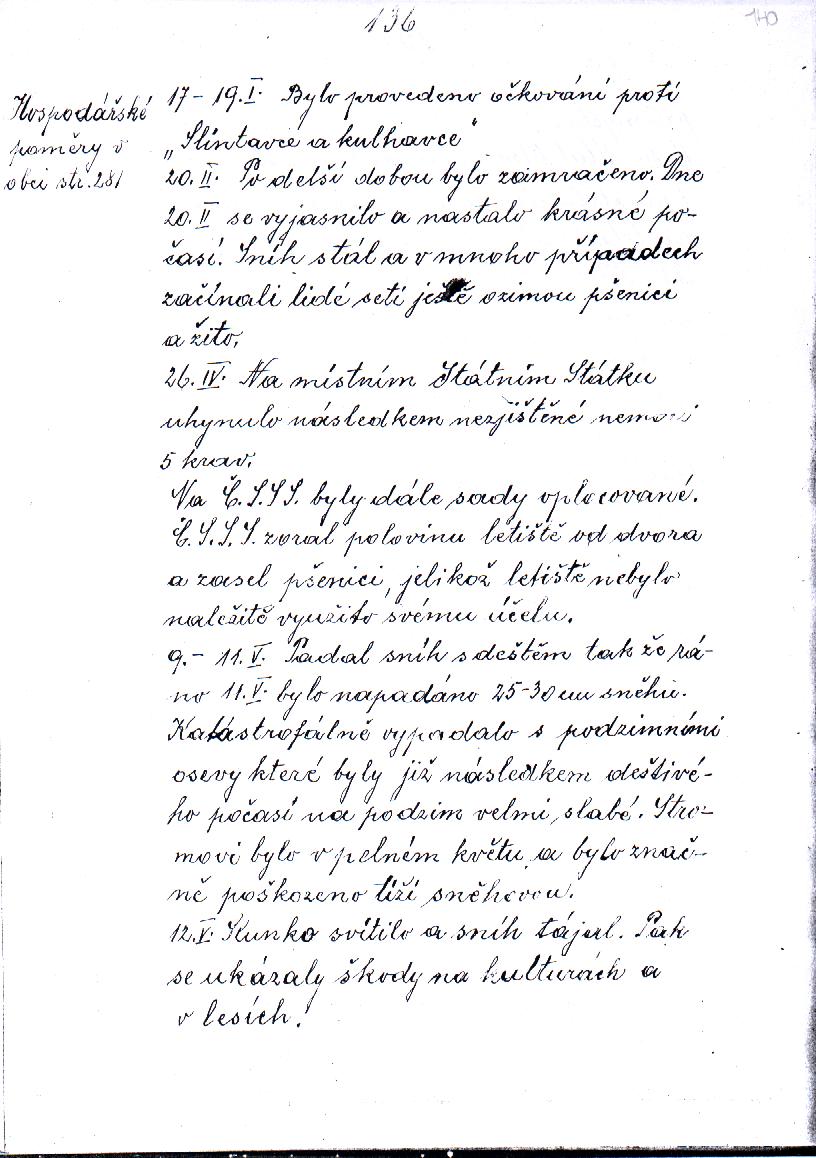 136
140
Hospodářské
poměry v
obci str. 281
17 - 19. I. Bylo provedeno očkování proti
„Slintavce a kulhavce"
20. II. Po delší dobou bylo zamračeno. Dne
20. II se vyjasnilo a nastalo krásné po-
časí. Sníh stál a v mnoho případech
začínali lidé setí ještě ozimou pšenici
a žito.
26. IV. Na místním Státním Státku
uhynulo následkem nezjištěné nemoci
5 krav.
Na Č.S.S.S. byly dále sady oplocované.
Č.S.S.S. zoral polovinu letiště od dvora
a zasel pšenici, jelikož letiště nebylo
naležitě využito svému účelu.
9. - 11. V. Padal sníh s deštěm tak že rá-
no 11. V. bylo napadáno 25-30 cm sněhu.
Katastrofálně vypadalo s podzimními
osevy které byly již následkem deštivé-
ho počasí na podzim velmi slabé. Stro-
moví bylo v pelném květu a bylo znač-
ně poškozeno tíží sněhovou.
12. V. Sunko svítilo a sníh tájal. Pak
se ukázaly škody na kulturách a
v lesích!